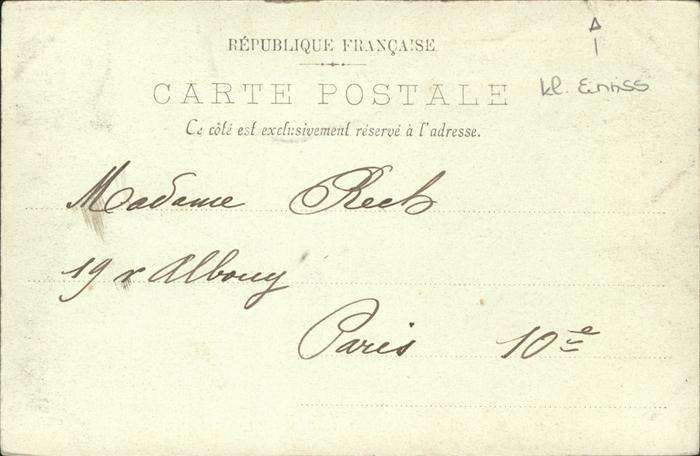 RÉPUBLIQUE FRANÇAISE
CARTE POSTALE
kl. Einriss
Ce côté est exclusivement réservé à l'adresse.
Madame Rech
19 r Albouy
Paris 10e